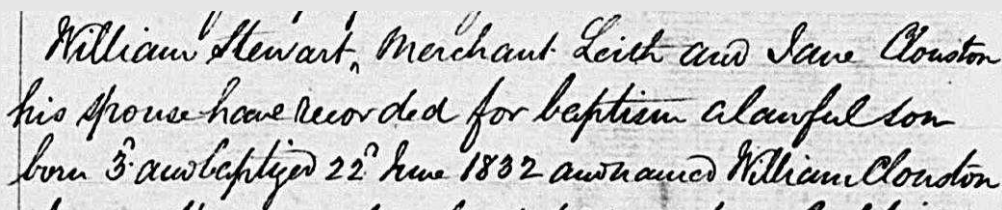 William Stewart, Merchant Leith and Jane Clouston
his spouse have recorded for baptism a lawful son
born 3d. and baptized 22d June 1832 and named William Clouston